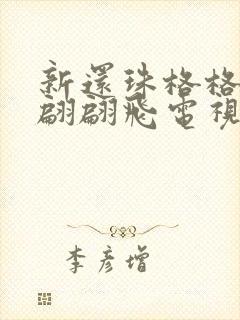 新還珠格格
翩翩飛電視
李彥增